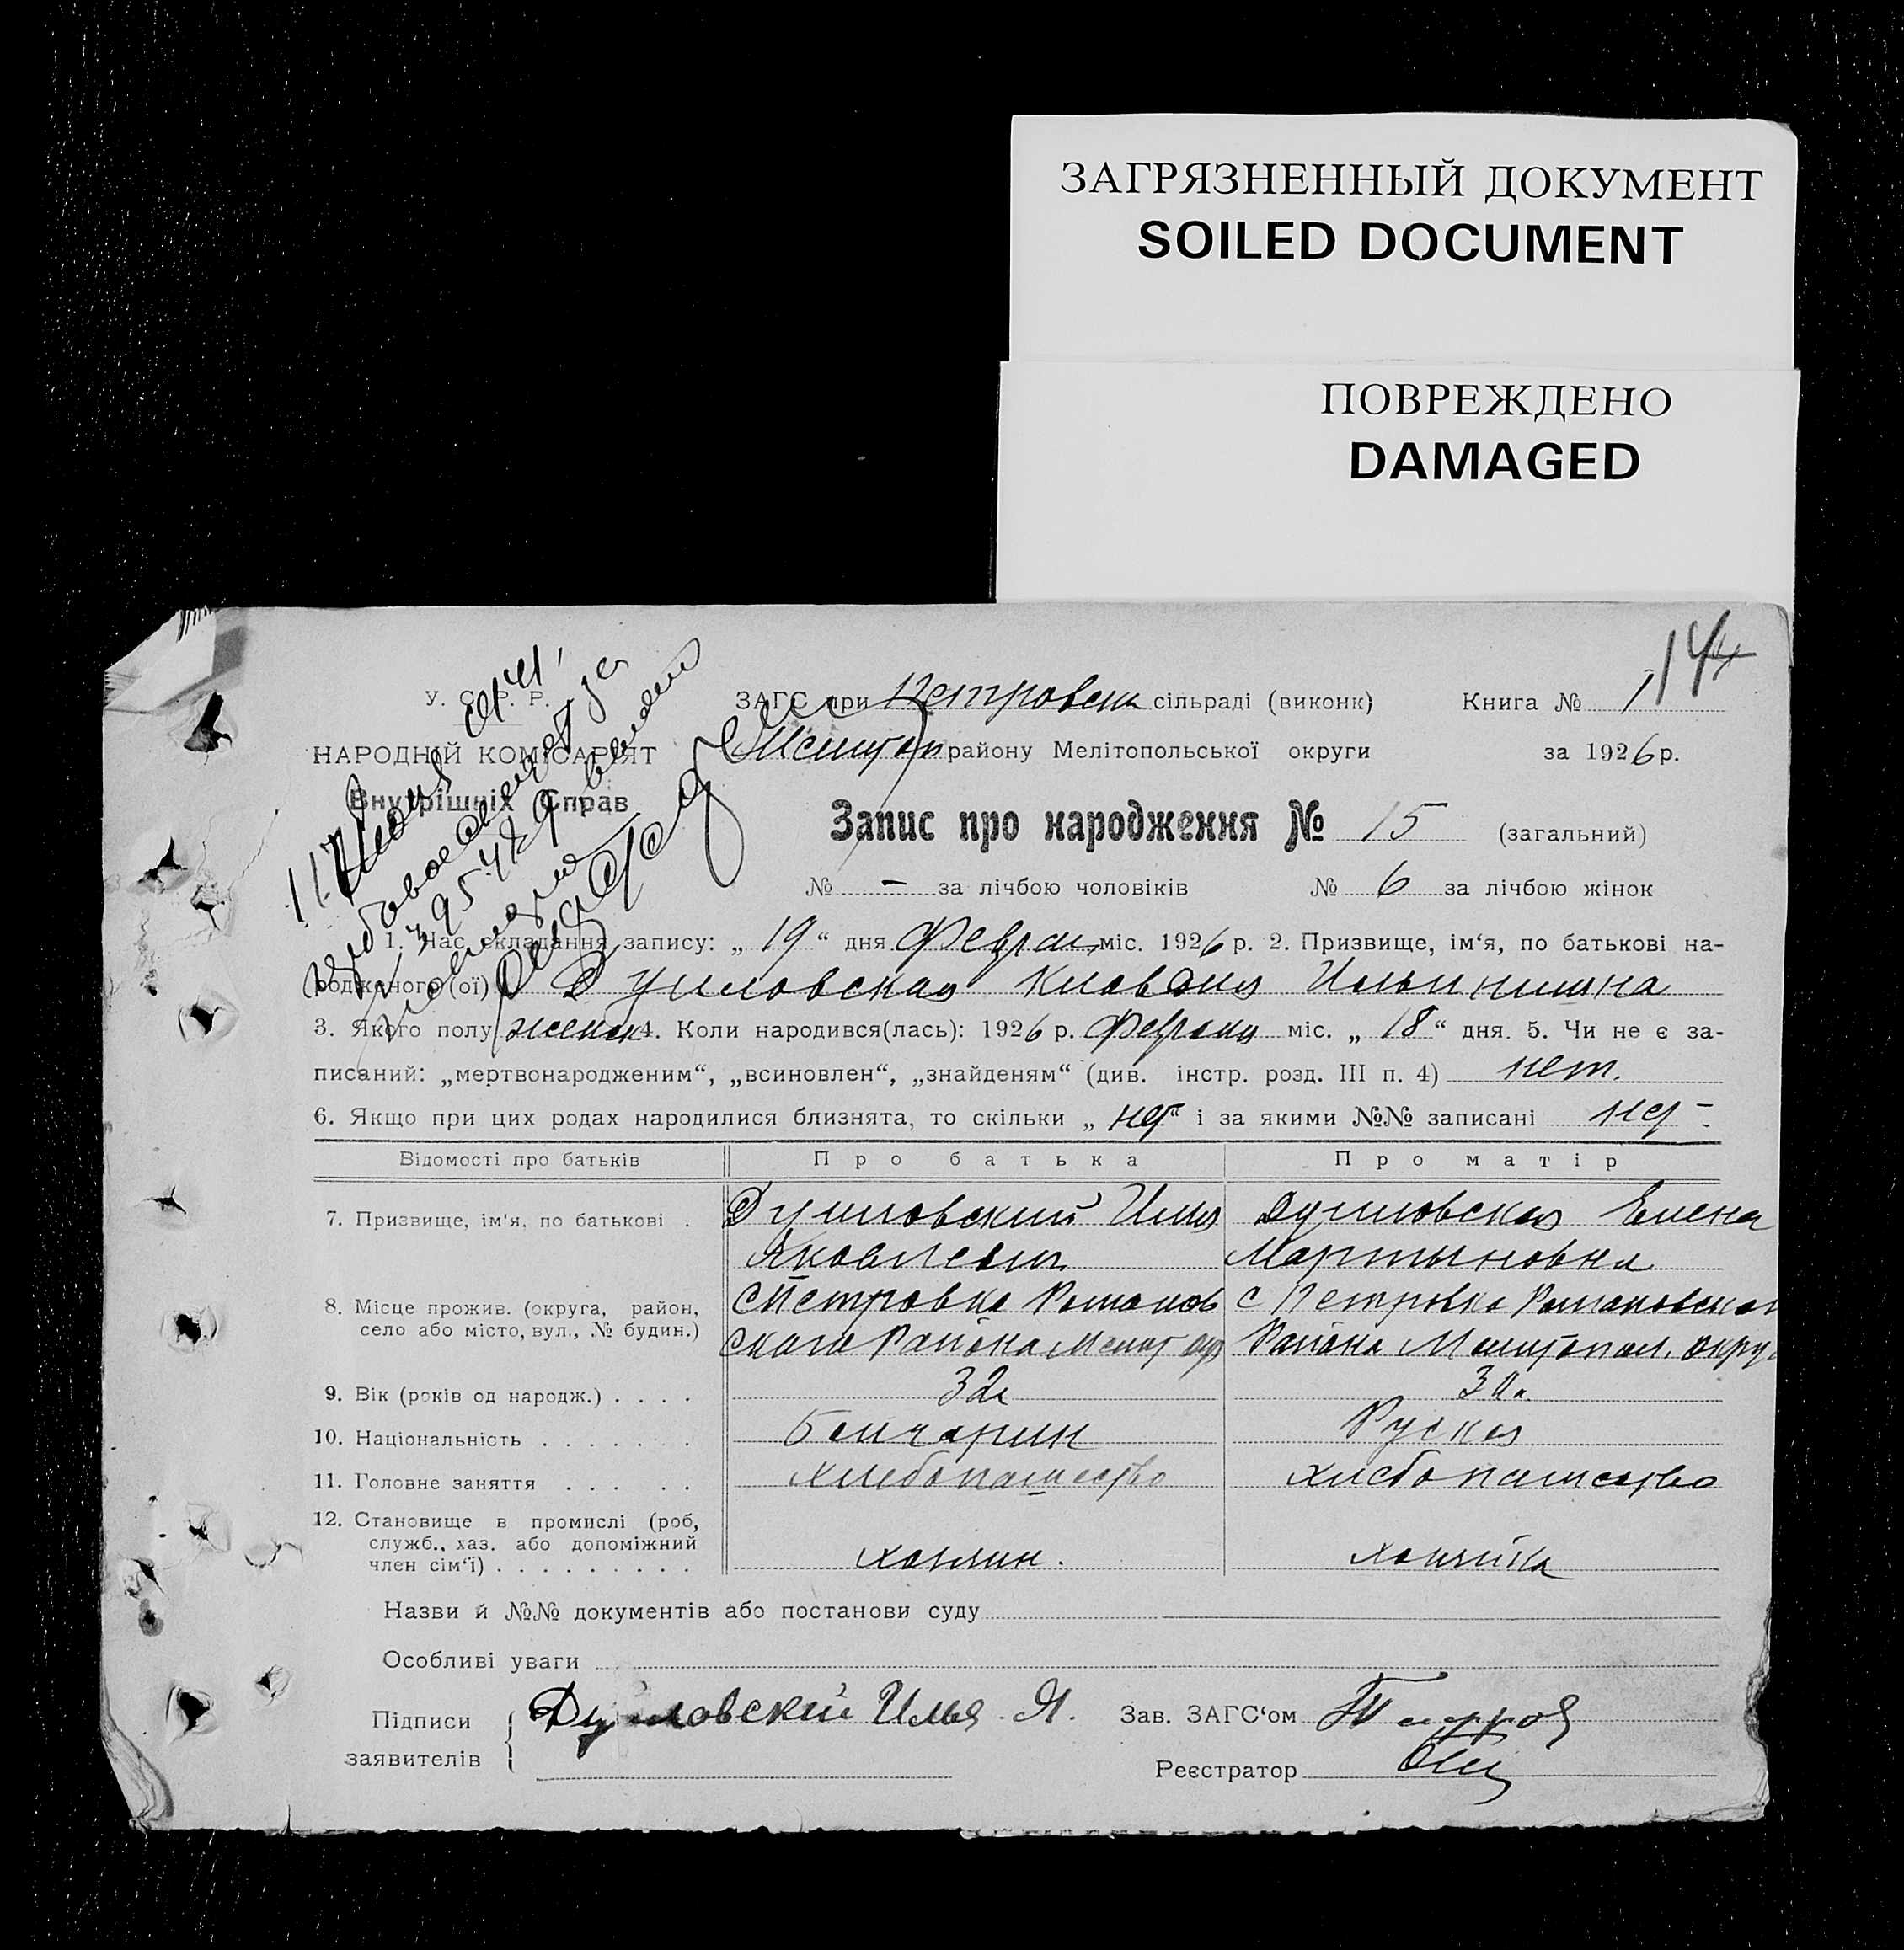 ЗАГРЯЗНЕННЫЙ ДОКУМЕНТ
SOILED DOCUMENT
ПОВРЕЖДЕНО
DAMAGED
14
У. С. Р. Р.
НАРОДНІЙ КОМІСАРІЯТ
Внутрішніх Справ
ЗАГС при Петровск сільраді (виконк)
Мелитоп району Мелітопольської округи
Книга № 1
за 1926 р.
Запис про народження № 15 (загальний)
№ – за лічбою чоловіків № 6 за лічбою жінок
1. Час складання запису: „ 19 “ дня Феврал міс. 1926 р. 2. Призвище, ім‘я, по батькові на-
родженого(ої) Душловская Клавдия Ильинишна
3. Якого полу женск 4. Коли народився(лась): 1926 р. Февраля міс. „ 18 “ дня. 5. Чи не є за-
писаний: „мертвонародженим“, „всиновлен“, „знайденям“ (див. інстр. розд. III п. 4) нет.
6. Якщо при цих родах народилися близнята, то скільки „ нет “ і за якими №№ записані нет –
Відомості про батьків Про батька Про матір
7. Призвище, ім‘я, по батькові . Душловский Илья Душловская Елена
Яковлевич Мартыновна
8. Місце прожив. (округа, район, село або місто, вул., № будин.) с Петровка Романов с Петровка Романовскаг
скага Района Мелит окр Района Мелитопол. окру
9. Вік (років од народж.) . . . . 32л 30л.
10. Національність . . . . . . . Болгарин Руская
11. Головне заняття . . . . . хлебопашество хлебопашество
12. Становище в промислі (роб,
служб., хаз. або допоміжний
член сім‘ї) . . . . . . . . . хозяин. хозяйка
Назви й №№ документів або постанови суду
Особливі уваги
Підписи
заявителів
Душловский Илья Я.
Зав. ЗАГС‘ом
Реєстратор